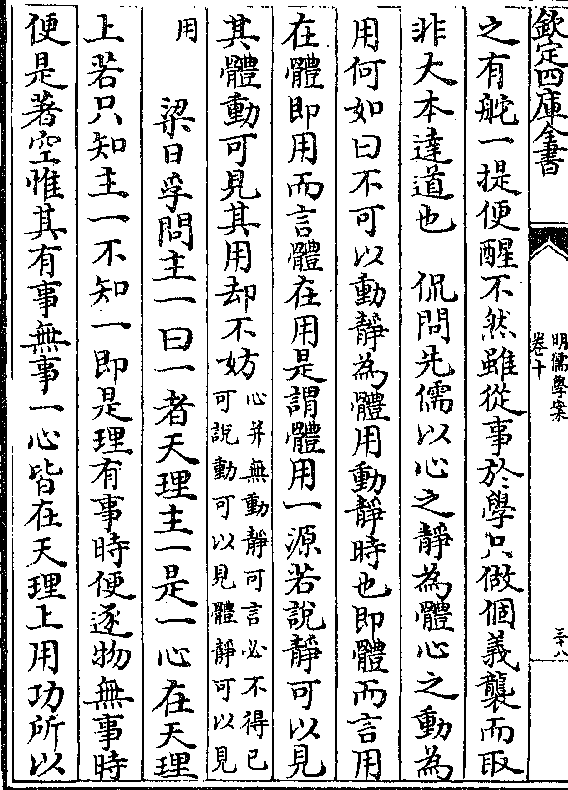 欽定四庫全書
明儒學案
卷十
三十八
之有舵一提便醒不然雖從事於學只做個義襲而取
非大本達道也　侃問先儒以心之靜為體心之動為
用何如曰不可以動靜為體用動靜時也即體而言用
在體即用而言體在用是謂體用一源若說靜可以見
其體動可見其用却不妨
心并無動靜可言必不得已
可說動可以見體靜可以見
用
梁日孚問主一曰一者天理主一是一心在天理
上若只知主一不知一即是理有事時便逐物無事時
便是著空惟其有事無事一心皆在天理上用功所以